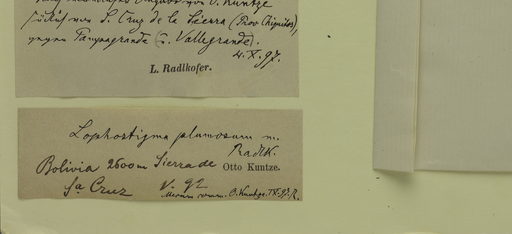 O. Kuntze
südöstl. von S. Cruz de la Sierra (Prov. Chiquitos),
gegen Pampagrande (i. Vallegrande).
4. X. 97.
L. Radlkofer.
Lophostigma plumosum m.
Radlk.
Bolivia 2600m Sierra de Otto Kuntze.
Sta Cruz V. 92
comm. O. Kuntze. IX. 97. R.